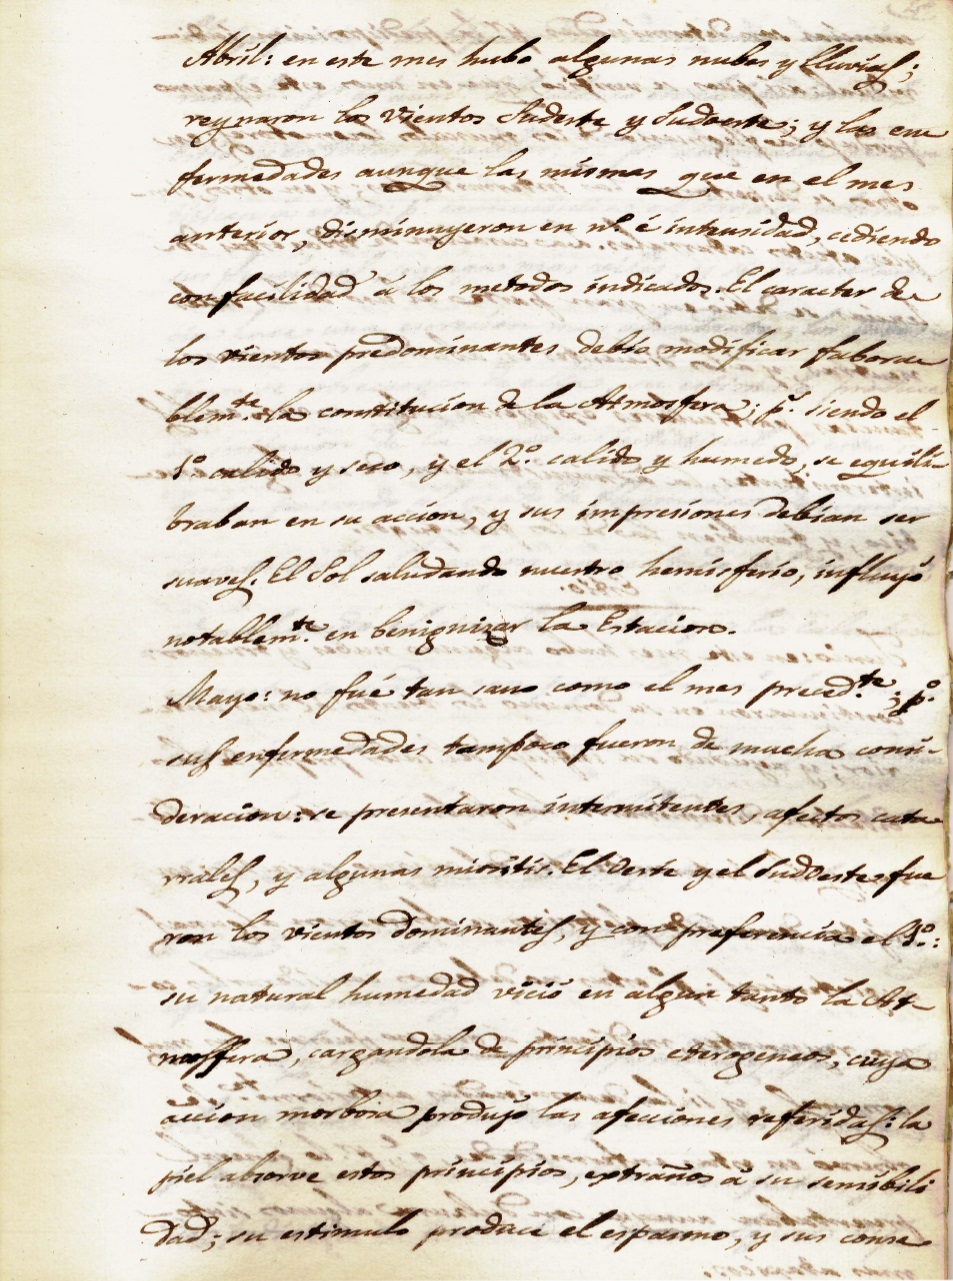 Abril: en este mes hubo algunas nubes y lluvias;
reynaron los vientos Sudeste y Sudoeste; y las en
fermedades aunque las mismas que en el mes
anterior, disminuyeron en nº. é intensidad, cediendo
con facilidad á los metodos indicados. El caracter de
los vientos predominantes debia modificar fabora
blemte. la constitucion de la Atmosfera; pr. siendo el
1º calido y seco, y el 2º. calido y humedo, se equili-
braban en su accion, y sus impresiones debian ser
suaves. El Sol saludando nuestro hemisferio, influyó
notablemte. en benignizar la Estacion.
Mayo: no fué tan sano como el mes precedte.; pº.
sus enfermedades tampoco fueron de mucha consi-
deracion: se presentaron intermitentes, afectos cata
rrales, y algunas miositis. El Oeste y el Sudoeste fue
ron los vientos dominantes, y con preferencia el 1º.:
su natural humedad vició en algun tanto la At
mosfera, cargandola de principios eterogeneos, cuya
accion morbosa produjo las afecciones referidas: la
piel absorve estos principios, extraños á su sensibili
dad; su estimulo produce el espasmo, y sus conse